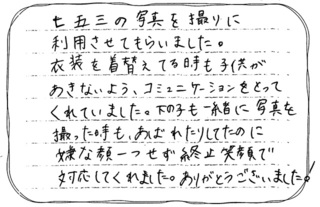 七五三の写真を撮りに
利用させてもらいました。
衣装を着替えてる時も子供が
あきないよう、コミュニケーションをとって
くれていました。下の子も一緒に写真を
撮った時も、あばれたりしてたのに
嫌な顔一つせず終止笑顔で
対応してくれました。ありがとうございました。